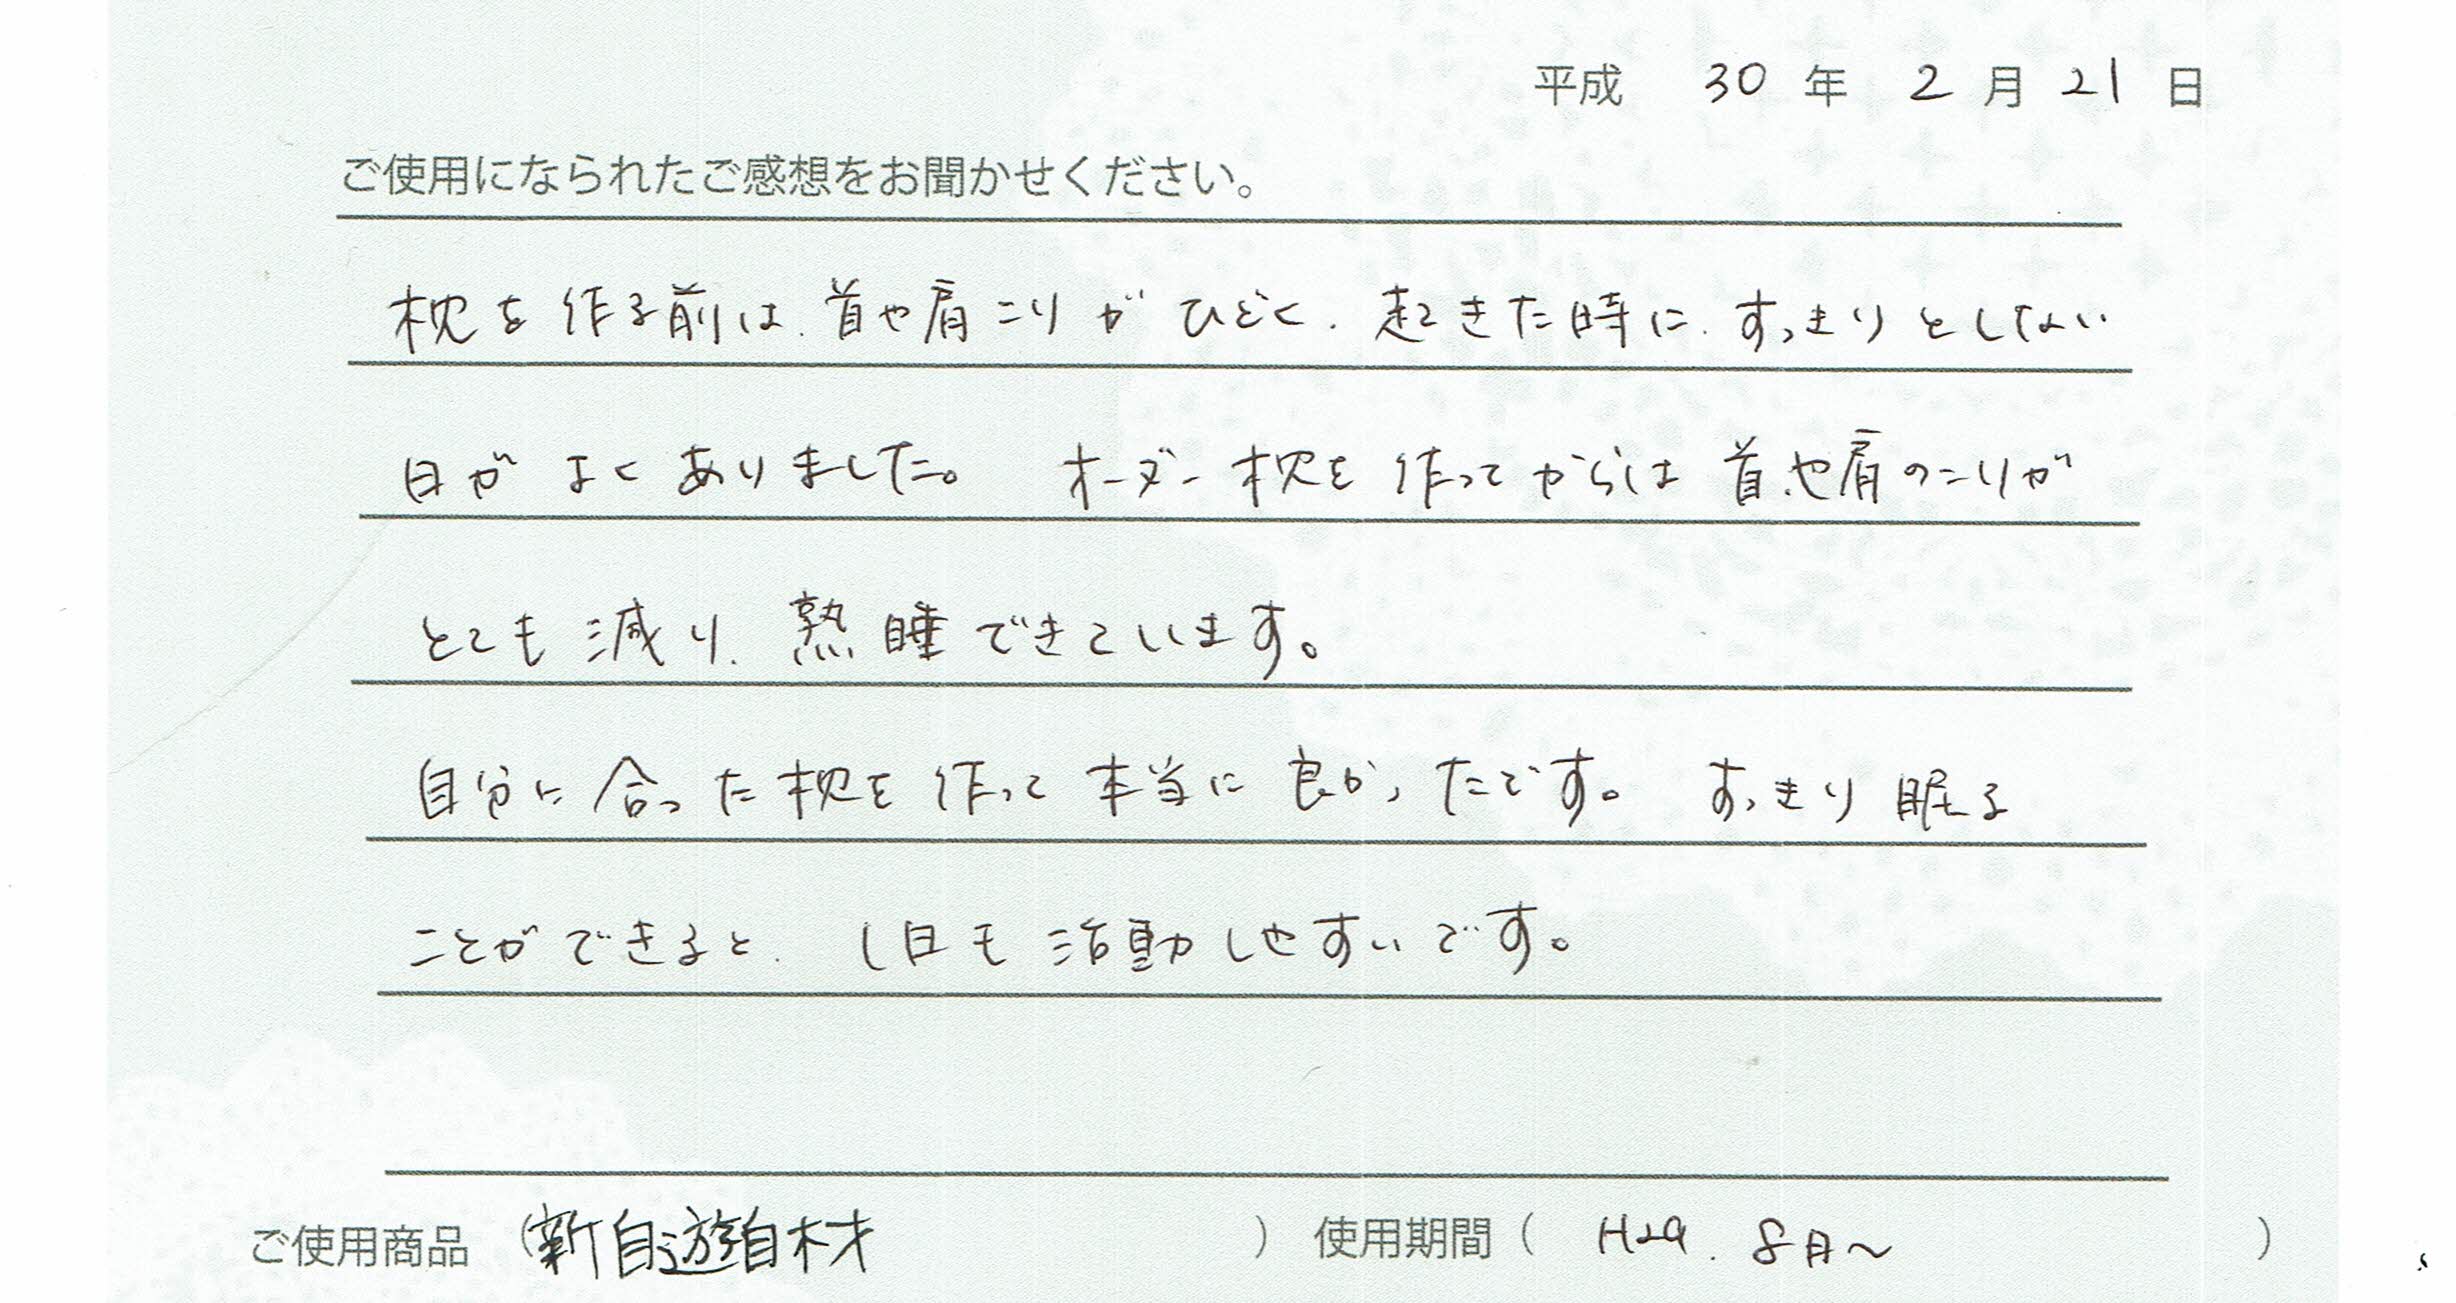 平成 30 年 2 月 21 日
ご使用になられたご感想をお聞かせください。
枕を作る前は、首や肩こりがひどく、起きた時に、すっきりとしない
日がよくありました。 オーダー枕を作ってからは首や肩のこりが
とても減り、熟睡できています。
自分に合った枕を作って本当に良かったです。 すっきり眠る
ことができると、1日も活動しやすいです。
ご使用商品 (新自遊自材 ) 使用期間 ( H29. 8月〜 )